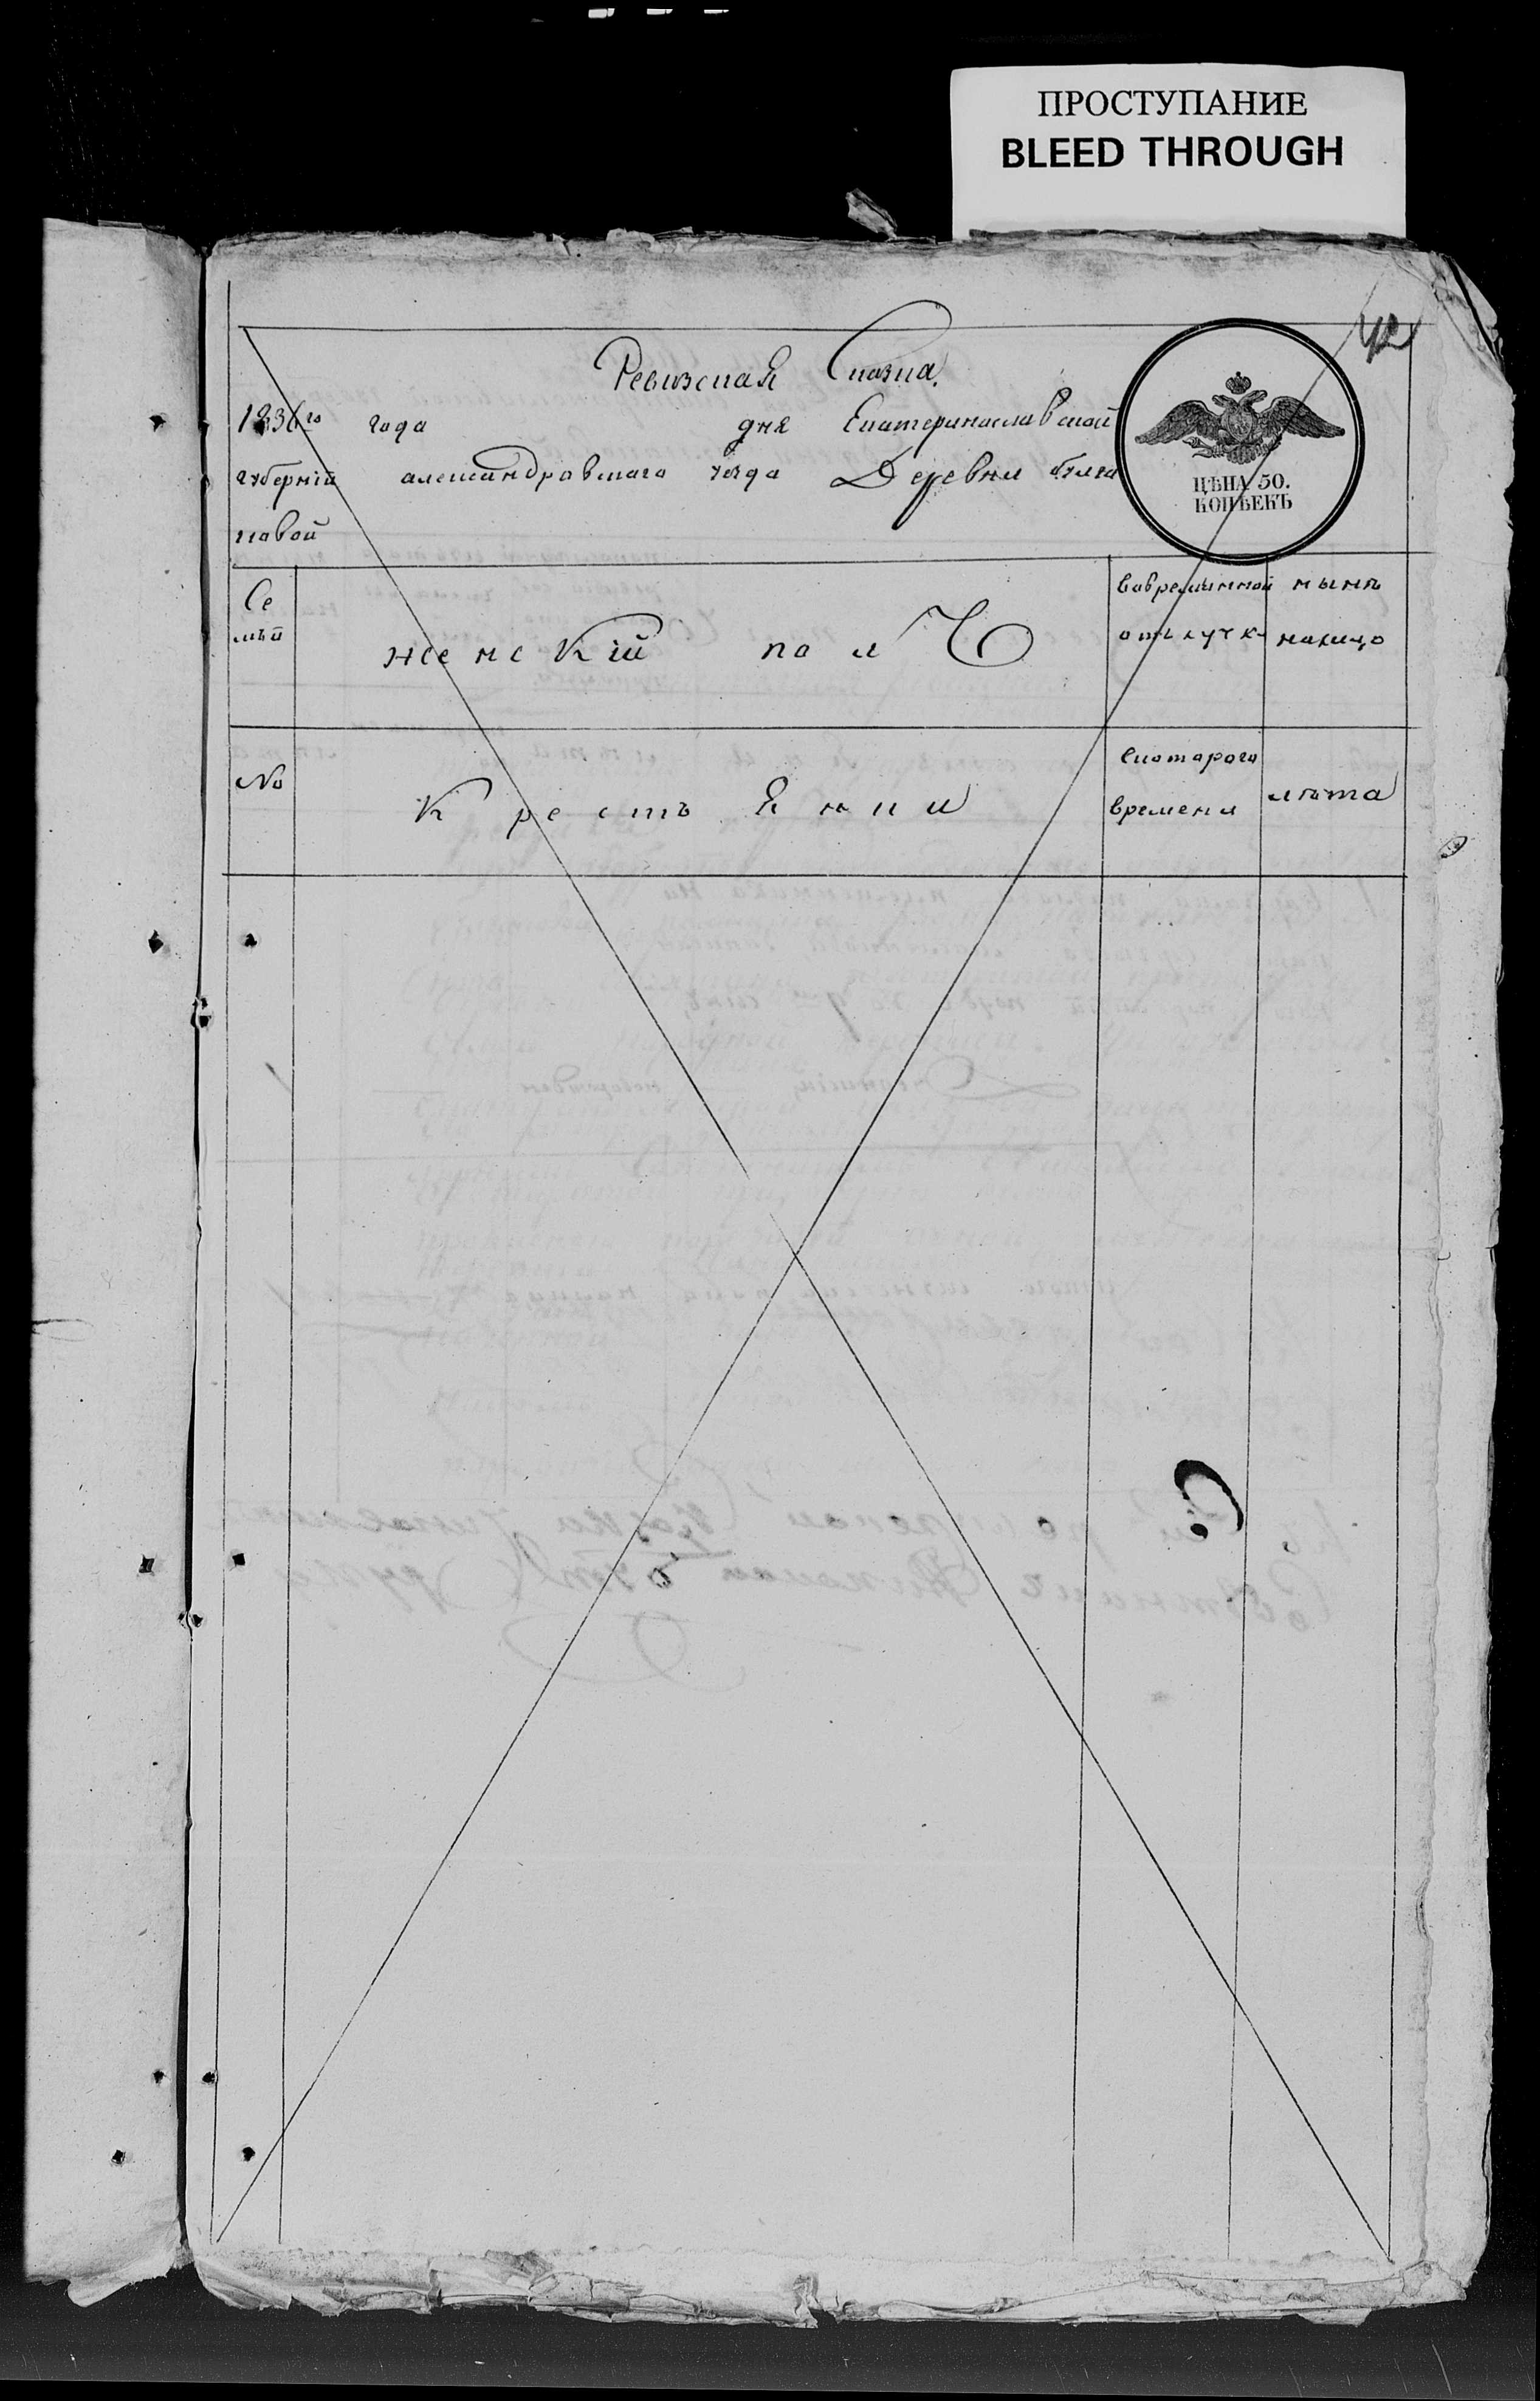 ПРОСТУПАНИЕ
BLEED THROUGH
42
Ревизская Сказка.
1836го года дня Екатеринославской
губерніи александровскаго уезда Деревни
ЦѢНА 50.
КОПѢЕКЪ
новой
Се
мьи
женскій полЪ
вовременной
отлучке
нынѣ
налицо
No
КрестьЯнки
скотораго
времени
лѣта